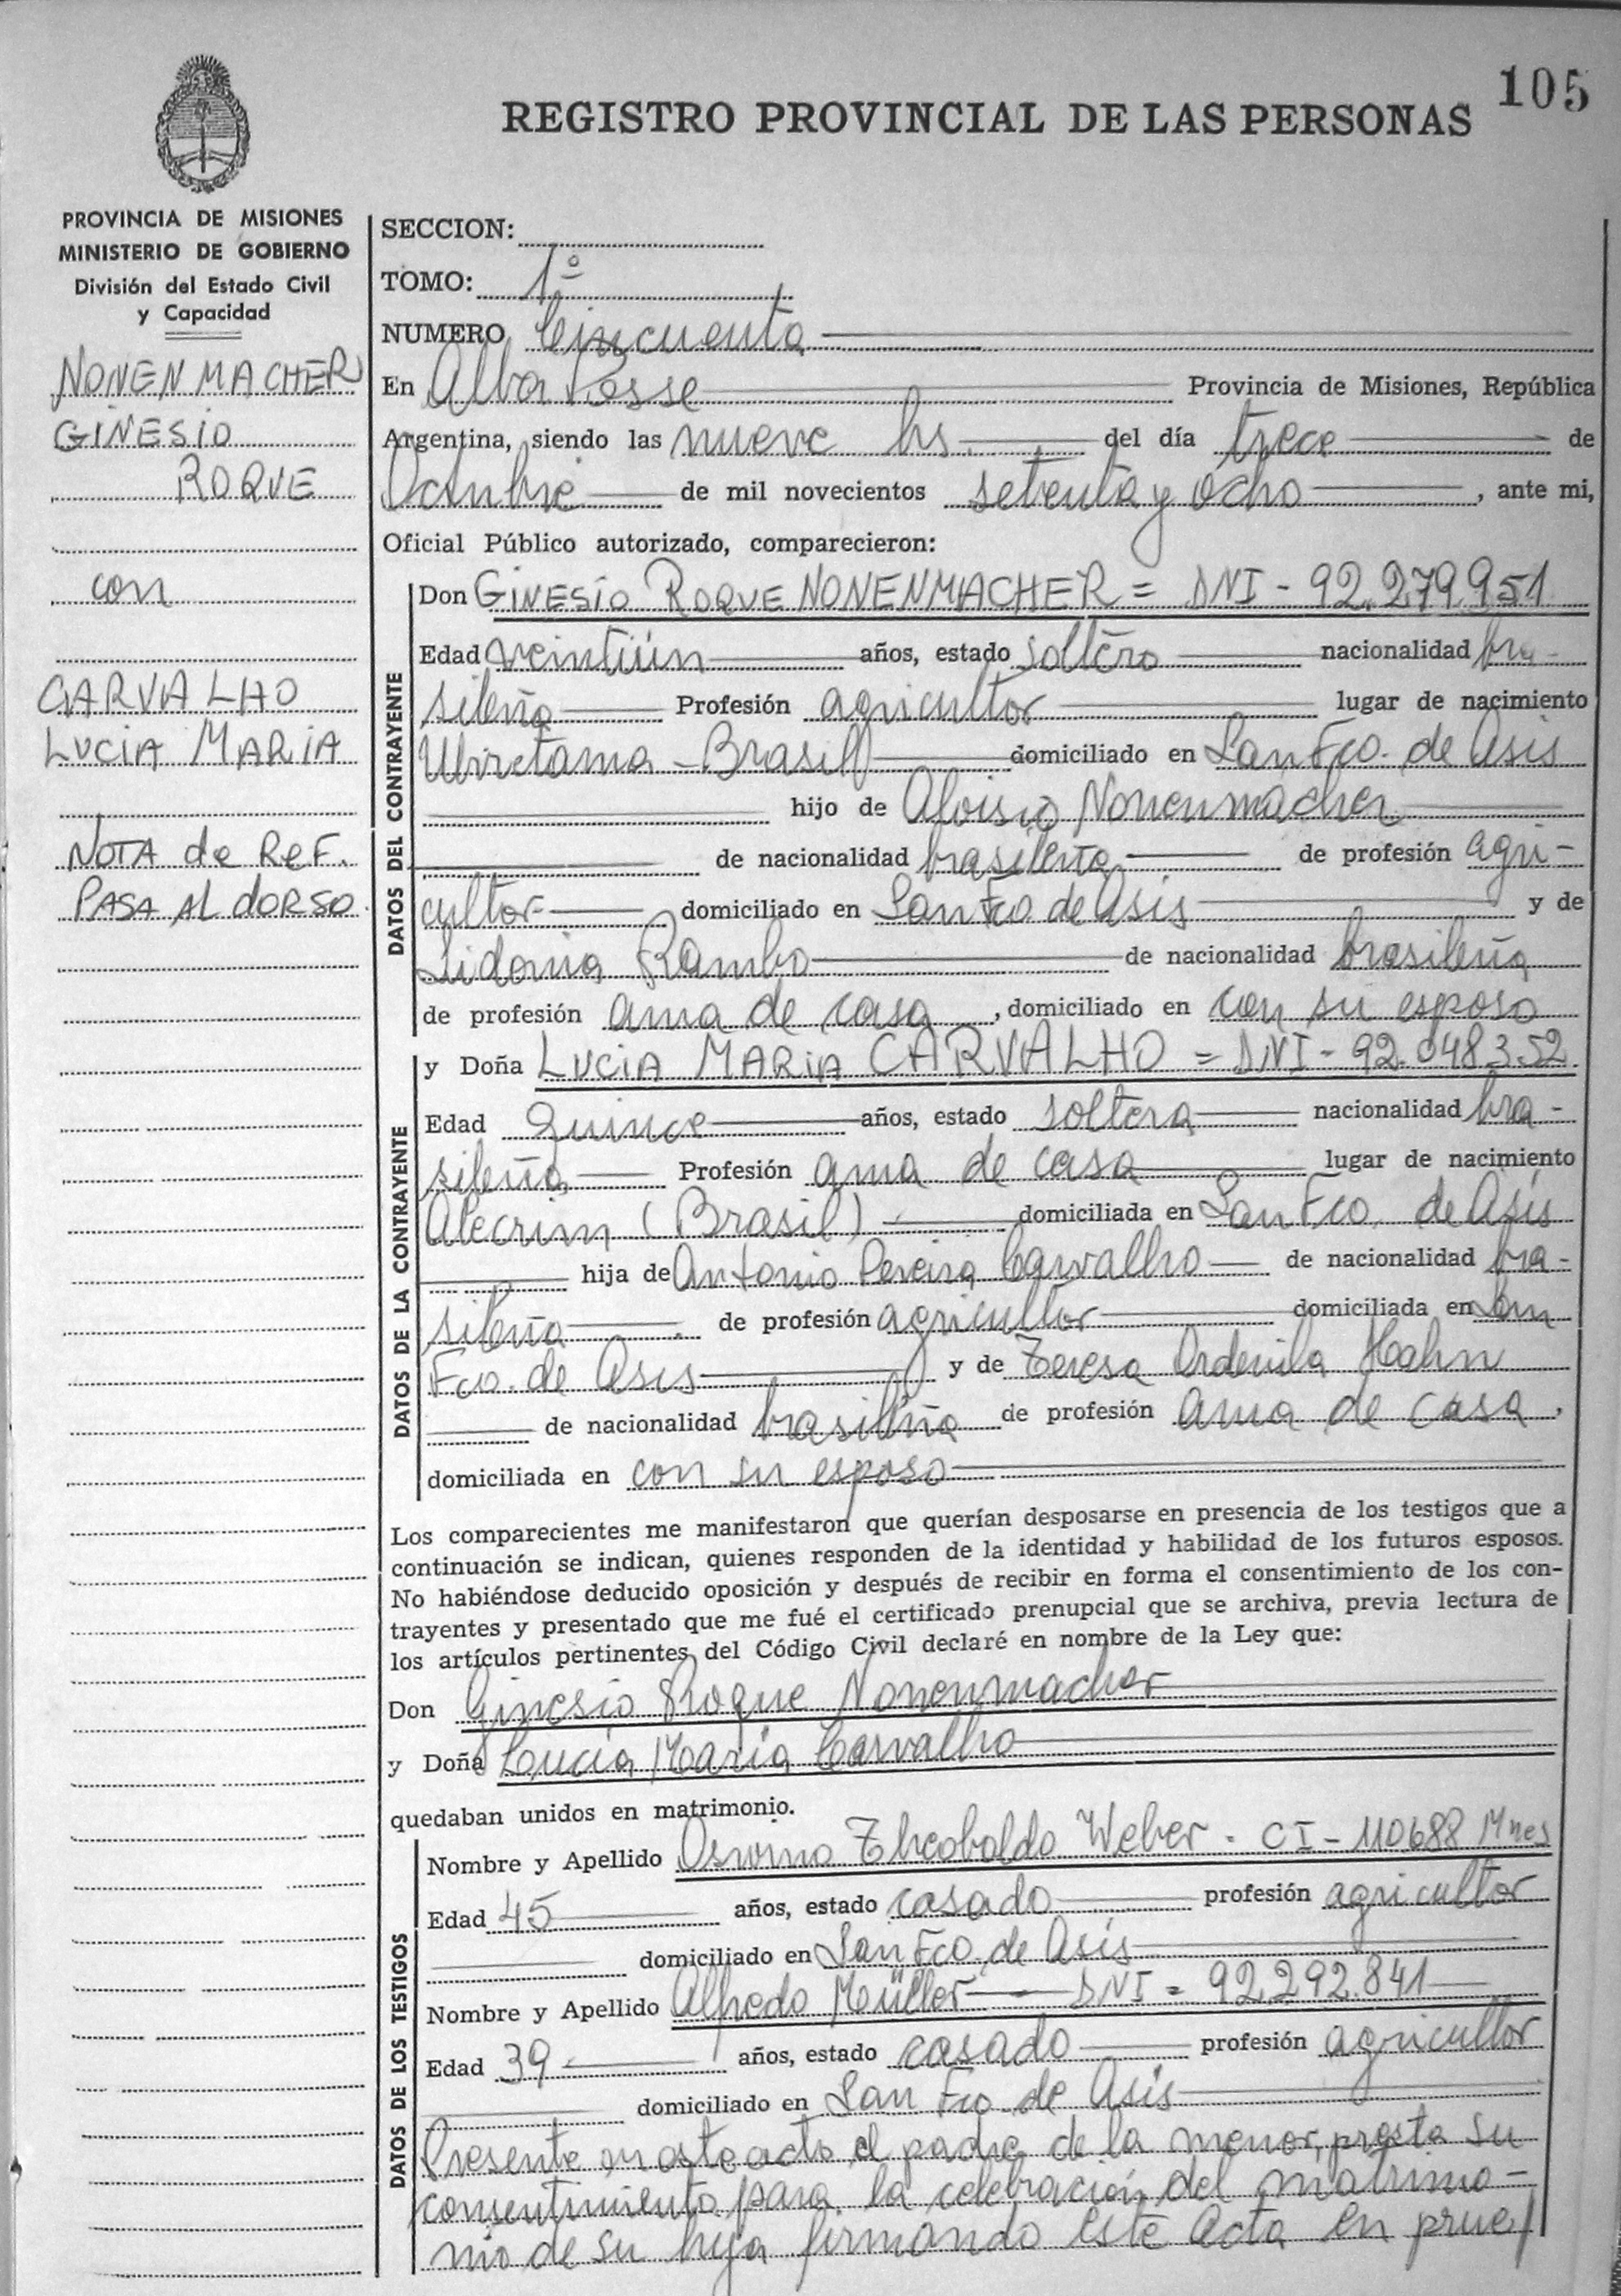 105
REGISTRO PROVINCIAL DE LAS PERSONAS
PROVINCIA DE MISIONES
MINISTERIO DE GOBIERNO
División del Estado Civil
y Capacidad
NONENMACHER
GINESIO
ROQUE
con
CARVALHO
LUCIA MARIA
NOTA de REF.
PASA AL dORSO.
SECCION:
TOMO: 1º
NUMERO Cincuenta
En Alba Posse Provincia de Misiones, República
Argentina, siendo las nueve hs. del día trece de
Octubre de mil novecientos setenta y ocho, ante mi,
Oficial Público autorizado, comparecieron:
DATOS DEL CONTRAYENTE
Don GINESIO ROQUE NONENMACHER = DNI - 92.279.951
Edad veintiún años, estado soltero nacionalidad bra-
sileña Profesión agricultor lugar de nacimiento
Ubiretama - Brasil domiciliado en San Fco. de Asis
hijo de Aloisio Nonenmacher
de nacionalidad brasileña de profesión agri-
cultor domiciliado en San Fco de Asis y de
Sidonia Rambo de nacionalidad brasileña
de profesión ama de casa, domiciliado en con su esposo
DATOS DE LA CONTRAYENTE
y Doña LUCIA MARIA CARVALHO = DNI - 92.048.352.
Edad quince años, estado soltera nacionalidad bra-
sileña Profesión ama de casa lugar de nacimiento
Alecrim (Brasil) domiciliada en San Fco. de Asis
hija de Antonio Pereira Carvalho de nacionalidad bra-
sileña de profesión agricultor domiciliada en San
Fco. de Asis y de Teresa Ordenila Hahn
de nacionalidad brasileña de profesión ama de casa,
domiciliada en con su esposo
Los comparecientes me manifestaron que querían desposarse en presencia de los testigos que a
continuación se indican, quienes responden de la identidad y habilidad de los futuros esposos.
No habiéndose deducido oposición y después de recibir en forma el consentimiento de los con-
trayentes y presentado que me fué el certificado prenupcial que se archiva, previa lectura de
los artículos pertinentes del Código Civil declaré en nombre de la Ley que:
Don Ginesio Roque Nonenmacher
y Doña Lucia Maria Carvalho
quedaban unidos en matrimonio.
DATOS DE LOS TESTIGOS
Nombre y Apellido Osvino Theobaldo Weber - CI - 110688 Mnes
Edad 45 años, estado casado profesión agricultor
domiciliado en San Fco. de Asis
Nombre y Apellido Alfredo Müller - DNI = 92.292.841
Edad 39 años, estado casado profesión agricultor
domiciliado en San Fco. de Asis
Presente en este acto el padre de la menor, presta su
consentimiento para la celebración del matrimo-
nio de su hija firmando este acta en prue/